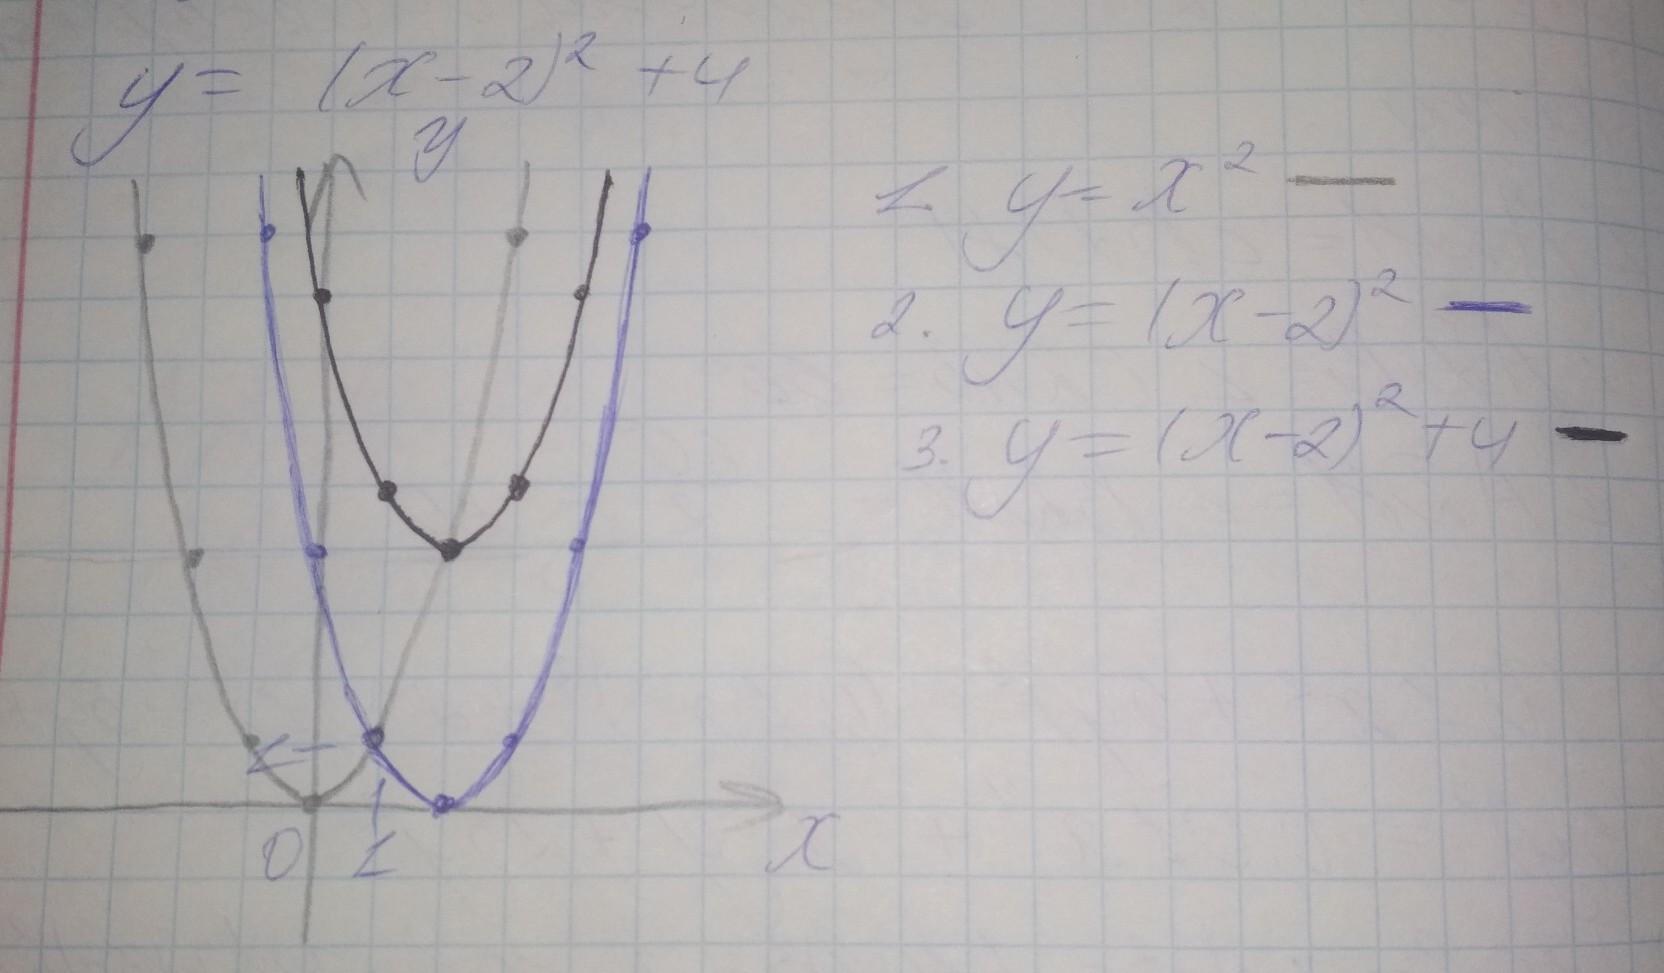 y = (x-2)² +4
y
1. y = x²
2. y = (x-2)²
3. y = (x-2)² +4
1
0 1 x